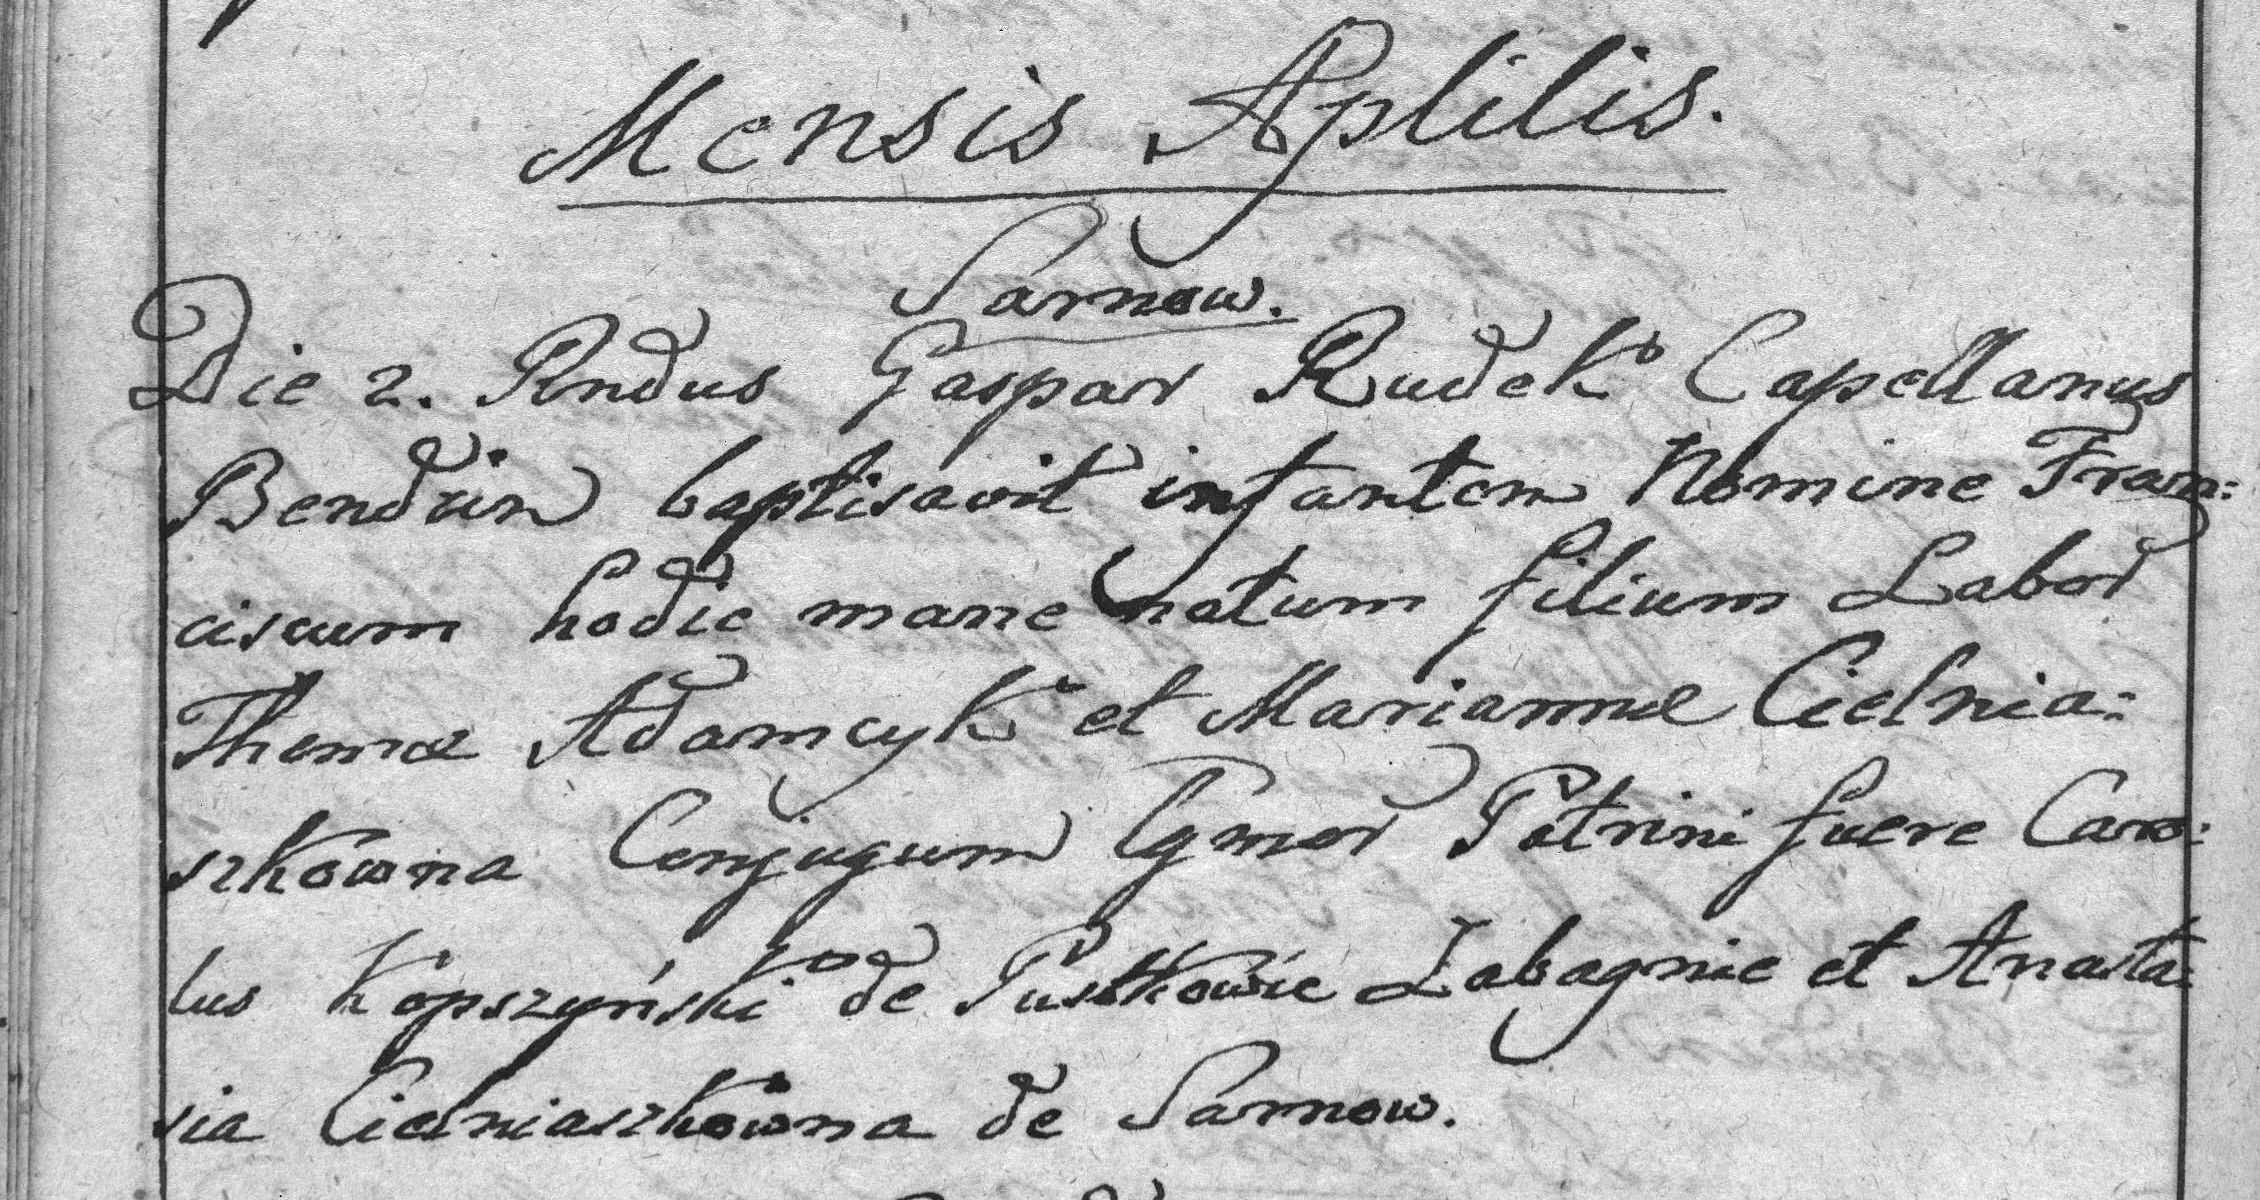 Mensis Aplilis.
Sarnow.
Die 2. Rndus Gaspar Rudek Capellanus
Bendzin baptisavit infantem Nomine Fran:
ciscum hodie mane natum filium Labor
Thomæ Adamcyk et Mariannæ Cielnia:
szkowna Conjugum Lgmor Patrini fuere Caro:
lus Kopszyński de Pustkowie Łabagnie et Anasta:
sia Cielniaszkowna de Sarnow.